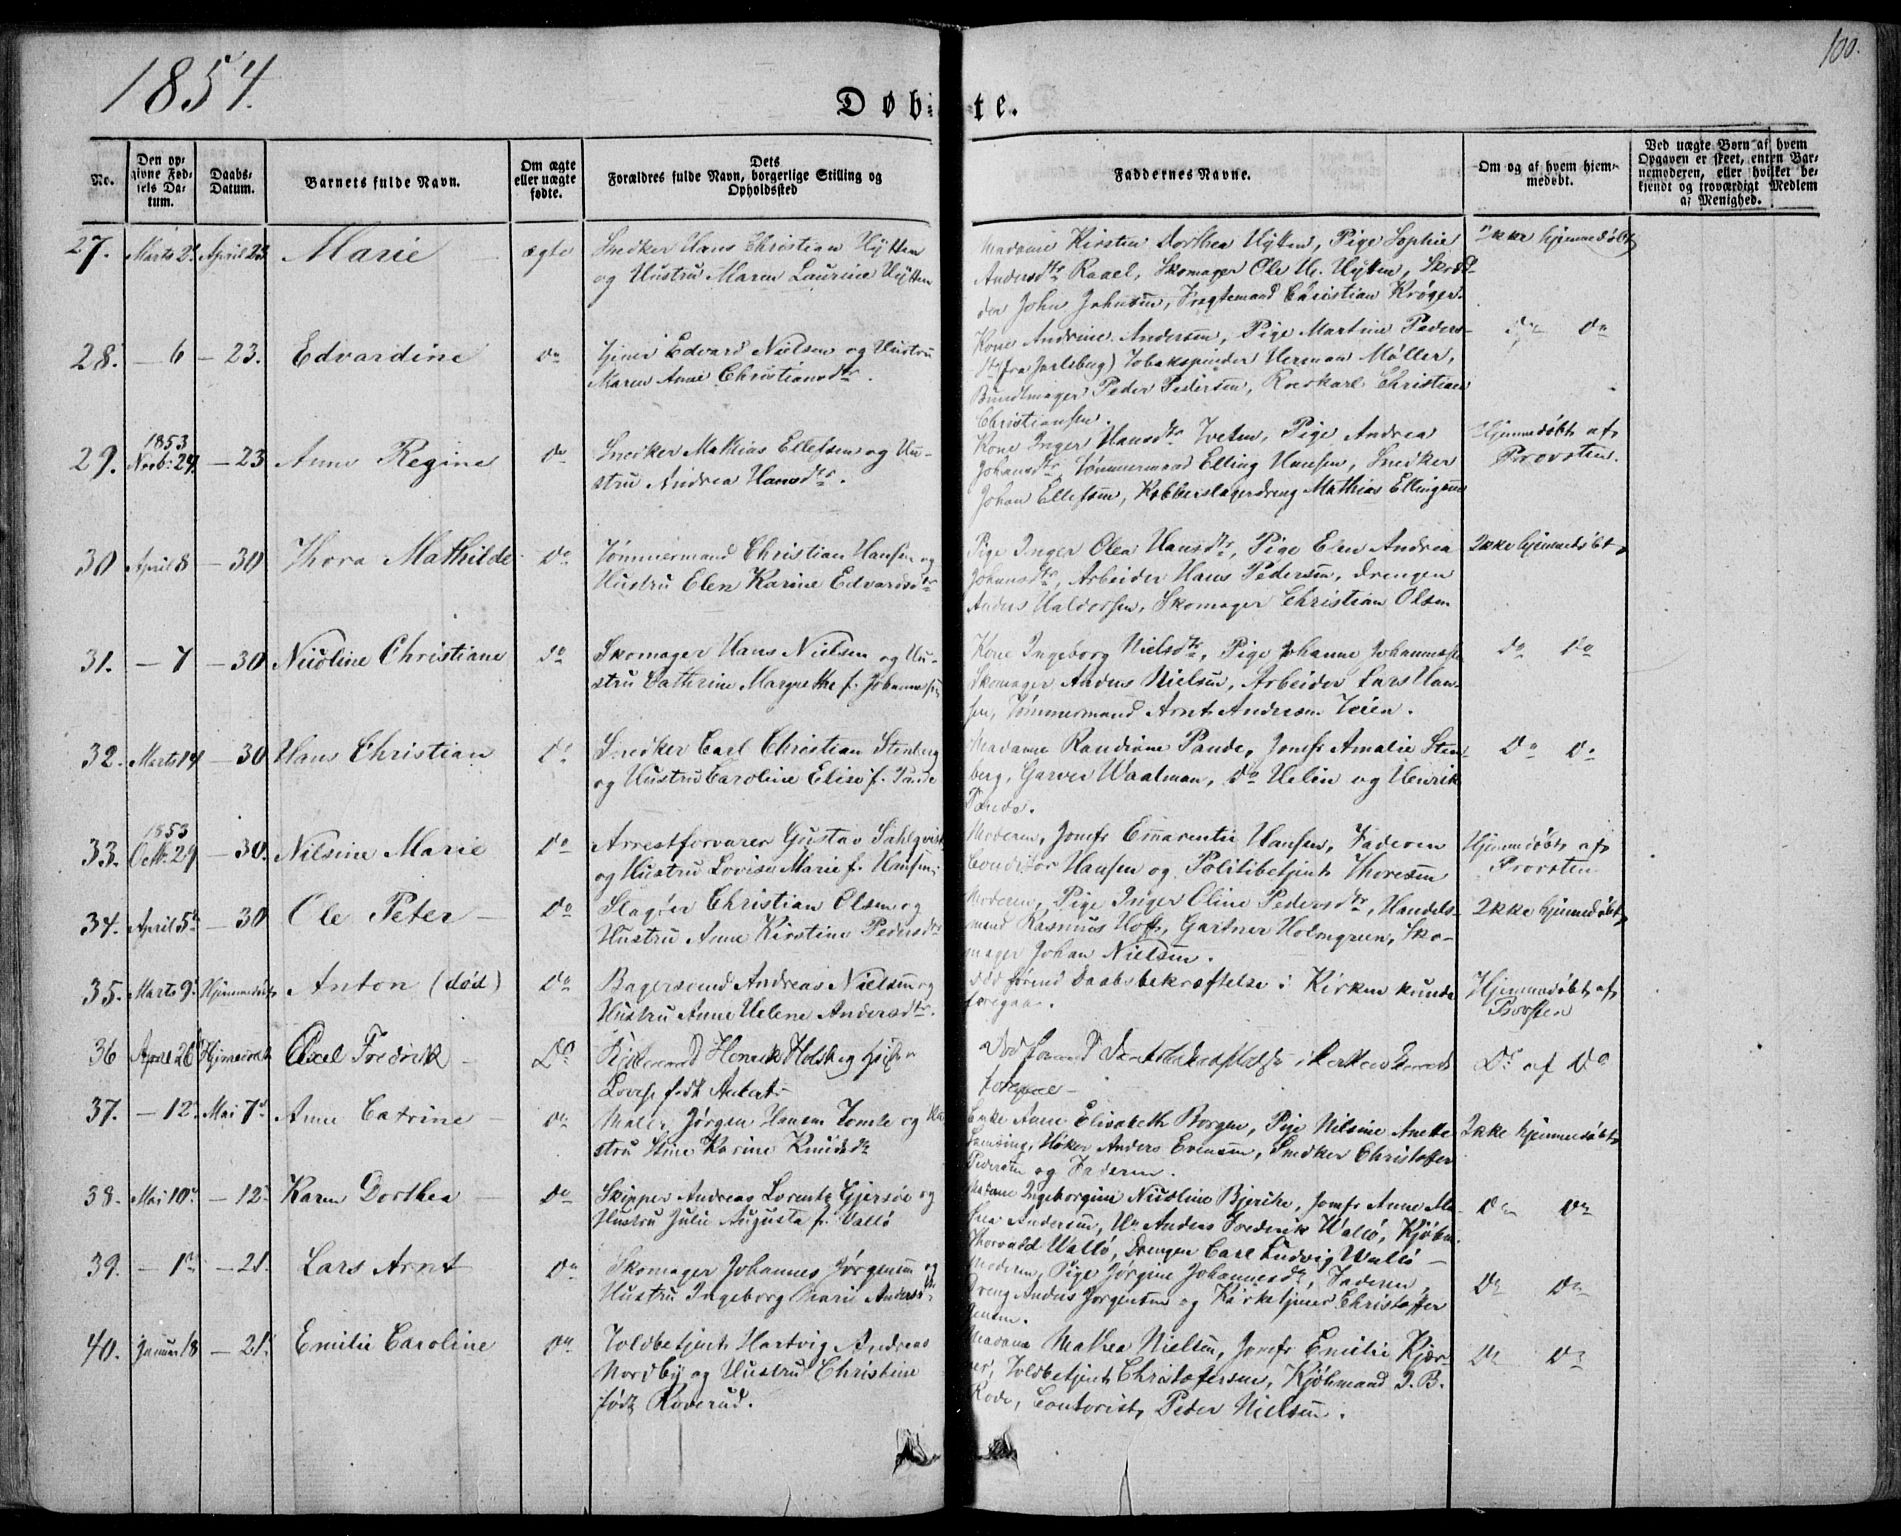 1854.
100.
Døbte.
No.
Den opgivne Fødsels Datum.
Daabs-Datum.
Barnets fulde Navn.
Om ægte eller uægte fødte.
Dets Forældres fulde Navn, borgerlige Stilling og Opholdssted
Faddernes Navne.
Om og af hvem hjemmedøbt.
Ved uægte Børn af hvem Opgaven er skeet, enten Barnemoderen, eller hvilket bekjendt og troværdigt Medlem af Menighed.
27. Marts 2 April 23 Marie ægte
Snedker Hans Christian Hytten
og Hustru Maren Laurine Hytten
Madame Kirsten Dorthea Hytten, Pige Sophie
Andersdtr Raael, Skomager Ole H. Hytten,
John Johnsen, Fragtemand Christian Krøger.
Ikke hjemmedøbt
28. – 6 – 23. Edvardine do
Edvard Nielsen og Hustru
Maren Anne Christiansdtr.
Kone Andrine Andersen, Pige Martine Peders-
dtr (fra Jarlsberg) Tobakspinder Herman Møller,
Bundtmager Peder Pedersen, Christian
Christiansen.
do do
29. 1853 Novb: 24 – 23 Anne Regine do
Snedker Mathias Ellefsen og Hu-
stru Andrea Hansdtr.
Kone Inger Hansdtr Tveten, Pige Andrea
Johansdtr, Tømmermand Elling Hansen, Snedker
Johan Ellefsen, Kobberslagerdreng Mathias Ellingsen
Hjemmedøbt af
Provsten.
30 April 8 – 30 Thora Mathilde do
Tømmermand Christian Hansen og
Hustru Elen Karine Edvardsdtr
Pige Inger Olea Hansdtr, Pige Elen Andrea
Johansdtr, Arbeider Hans Pedersen, Drengen
Anders Haldorsen, Skomager Christian Olsen
Ikke hjemmedøbt
31. – 7 – 30 Nicoline Christiane do
Skomager Hans Nielsen og Hu-
stru Cathrine Margrethe f. Johannesen
Kone Ingeborg Nielsdtr, Pige Johanne Johannesen
Skomager Anders Nielsen, Arbeider Lars Han-
sen, Tømmermand Arnt Andersen Veien.
do do
32. Marts 14 – 30 Hans Christian do
Snedker Carl Christian Stenberg
og Hustru Caroline Elise f. Pande
Madame Randine Pande, Jomfr Amalie Sten-
berg, Garver Waalman, do Helin og Henrik
Pande.
do do
33. 1853 Octb. 29 – 30. Nilsine Marie do
Arrestforvarer Gustav Sahlqvist
og Hustru Lovise Marie f. Hansen
Moderen, Jomfr Emarentie Hansen, Faderen
Conditor Hansen og Politibetjent Thoresen
Hjemmedøbt af
Provsten
34. April 5 – 30 Ole Peter – do
Slagter Christian Olsen og
Hustru Anne Kirstine Pedersdtr
Moderen, Pige Inger Oline Pedersdtr, Handels-
mand Rasmus Hoff, Gartner Holmgreen, Sko-
mager Johan Nielsen.
Ikke hjemmedøbt
35. Marts 9 Hjemmedøbt Anton (død) do
Bagersvend Andreas Nielsen og
Hustru Anne Helene Andersdtr.
død førend Daabsbekræftelse i Kirken kunde
foregaa.
Hjemmedøbt af
Provsten
36 April 26 Hjemmedøbt Axel Fredrik – Do
Henrik Holsberg og
Lovise født
Død førend Daabsbekræftelse i Kirken kunde
foregaae –
Do af Do
37. – 12 Mai 7 Anne Catrine – do
Maler Jørgen Hansen Tomte og Hu-
stru Stine Karine Knudsdtr
Enke Anne Elisabeth Borgen, Pige Nilsine Anette
Høker Anders Evensen, Snedker Christoffer
Pedersen og Faderen.
Ikke hjemmedøbt
38. Mai 10 – 12 Karen Dorthea – do
Skipper Andreas Lorentz Gjersøe og
Hustru Julie Augusta f. Vallø
Madame Ingeborgine Nicoline Bjerke, Jomfr Anne Ma-
thea Andersen, Hr Anders Frederik Wallø, Kjøbm.
Thorvald Wallø, Drengen Carl Ludvig Wallø –
do do
39. – 1 – 21. Lars Arnt do
Skomager Johannes Jørgensen og
Hustru Ingeborg Marie Andersdtr
Moderen, Pige Jørgine Johannesdtr, Faderen,
Dreng Anders Jørgensen og Kirketjener Christoffer
Jensen.
do do
40. Januar 18 – 21. Emilie Caroline do
Toldbetjent Hartvig Andreas
Nordby og Hustru Christine
født Roverud.
Madame Mathea Nielsen, Jomfr Emilie Kjær-
ner, Toldbetjent Christofersen, Kjøbmand J. B.
Rode, Contorist Peder Nielsen.
do do